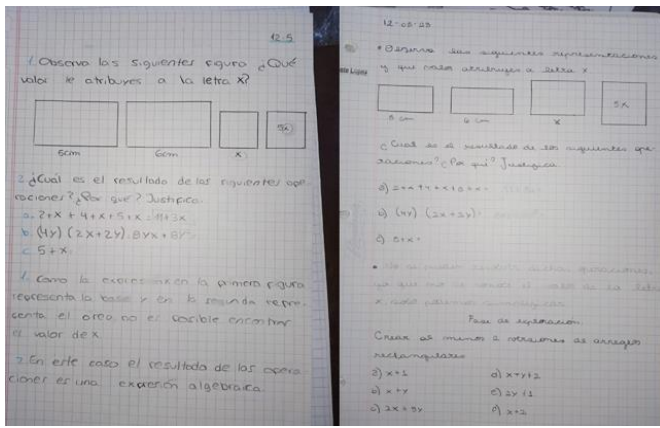 12-5
1. Observa las siguientes figura ¿Qué
valor le atribuyes a la letra X?
5cm 6cm X
2. ¿Cuál es el resultado de las siguientes ope
raciones? ¿Por qué? Justifica.
a. 2+x + 4+x+5+x = 11+3x
b. (4y) (2x+2y). 8yx + 8y
c. 5+x.
1. Como la expresion en la primera figura
representa la base y en la segunda repre-
senta el area no es posible encontrar
el valor de x.
2. En este caso el resultado de las opera
ciones es una expresión algebraica.
12-05-25
• Observa las siguientes representaciones
y que valor atribuyes a letra x
5 cm 6 cm x 5x
¿Cual es el resultado de las siguientes ope-
raciones? ¿Por qué? Justifica
b) (4y) (2x+2y)
c) 5+x=
Fase de exploración.
Crear al menos 2 versiones de arreglos
rectangulares
b) x+y
c) 2x+5y
d) x+y+2